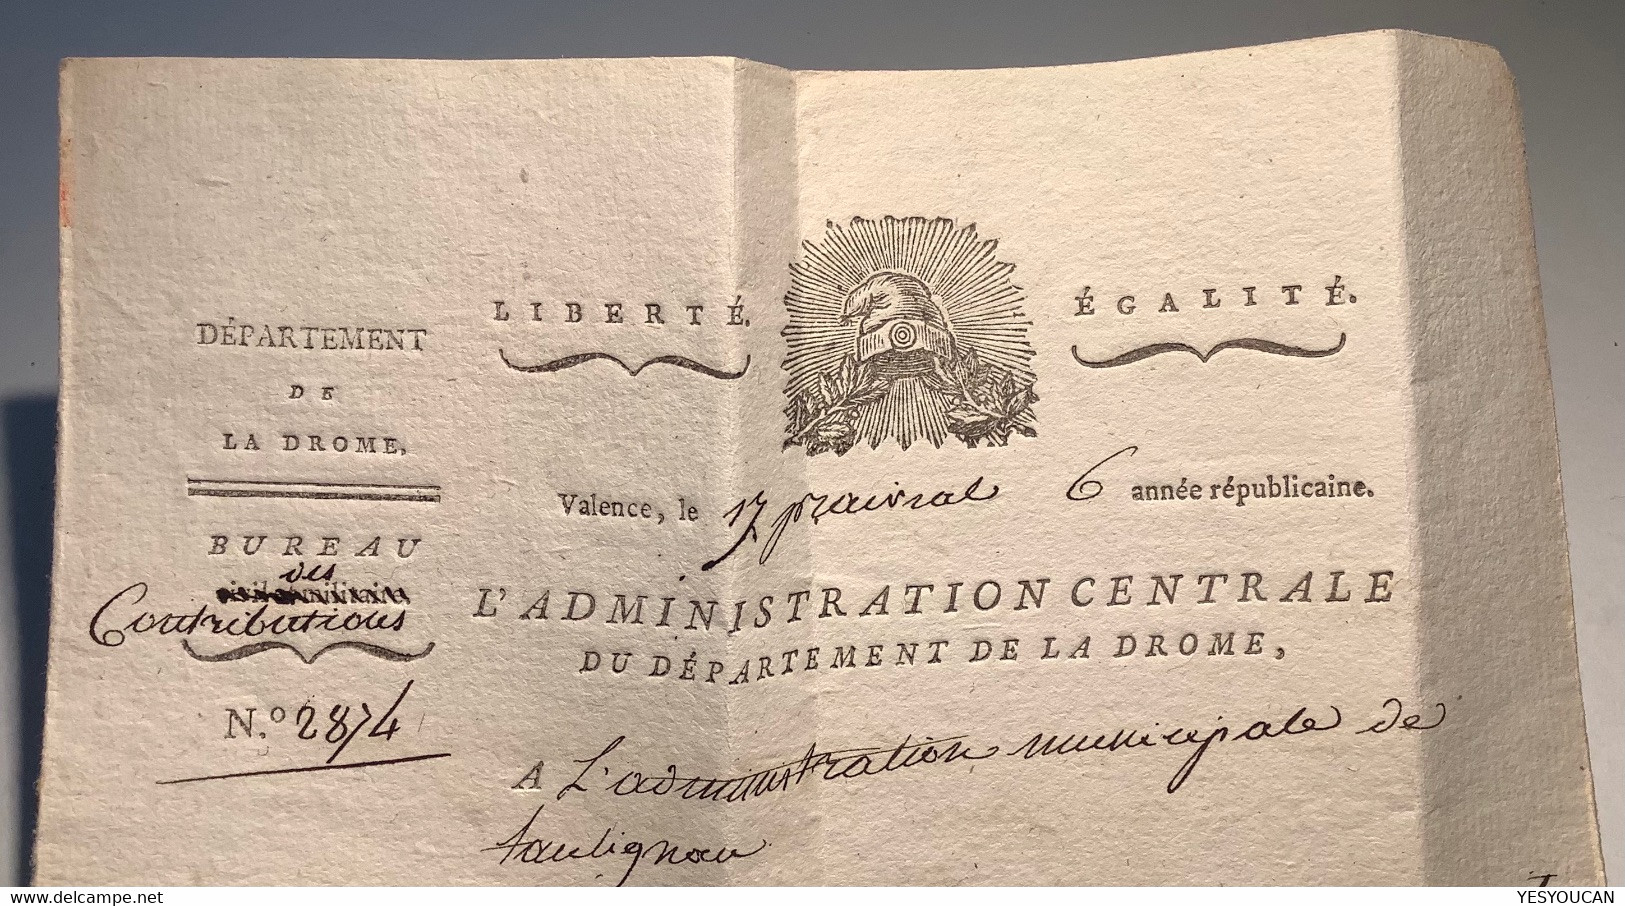 LIBERTÉ. ÉGALITÉ.
DÉPARTEMENT
DE
LA DROME.
BUREAU
des
Contributions
N.º 2874
Valence, le 17 prairial 6 année républicaine.
L'ADMINISTRATION CENTRALE
DU DÉPARTEMENT DE LA DROME,
A L'administration municipale de
taulignan
www.delcampe.net
YESYOUCAN